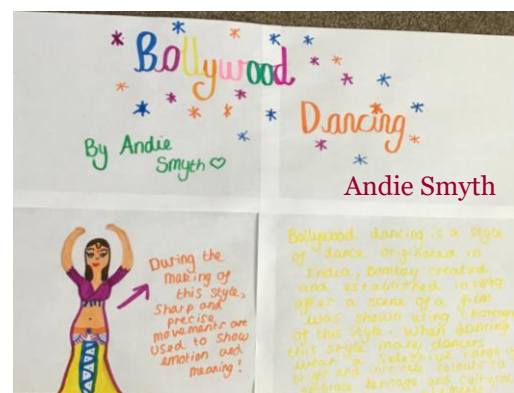 Bollywood
Dancing
By Andie
Smyth
Andie Smyth
During the
making of
this style,
sharp and
precise
movements are
used to show
emotion and
meaning!
Bollywood dancing is a style
of dance originated in
India, Bombay created
and established in
after a scene of a film
was shown using
of this style. When dancing
this style many dancers
wear a selective range of
bright and intricate colours to
embrace heritage and cultural